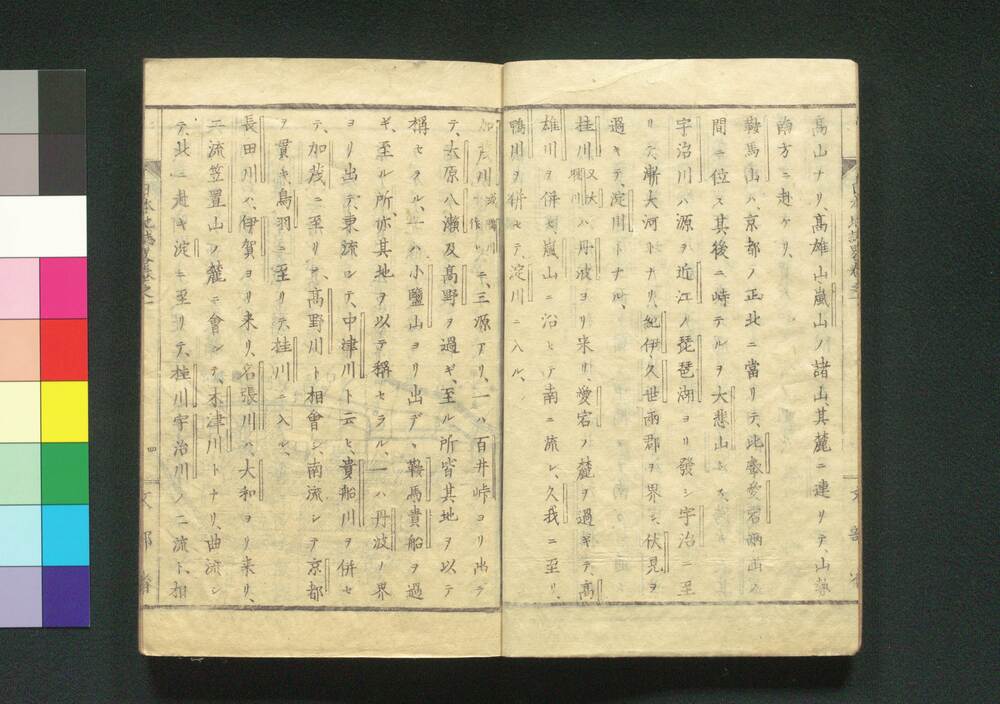 高山ナリ、高雄山嵐山ノ諸山、其麓ニ連リテ、山勢
南方ニ赴ケリ、
鞍馬山ハ、京都ノ正北ニ當リテ、比叡愛宕兩山ノ
間ニ位ス其後ニ峙テルヲ大悲山トス、
宇治川ハ源ヲ近江ノ琵琶湖ヨリ發シ宇治ニ至
リテ、漸ク大河トナリ、紀伊久世兩郡ヲ界シ、伏見ヲ
過ギテ、淀川トナル、
桂川又大堰川ハ、丹波ヨリ来リ、愛宕ノ麓ヲ過ギテ、高
雄川ヲ併セ、嵐山ニ沿ヒテ南ニ流レ、久我ニ至リ、
鴨川ヲ併セテ、淀川ニ入ル、
加茂川或鴨川ニ作ル ニ、三源アリ、一ハ百井峠ヨリ出デ
テ、大原八瀬及高野ヲ過ギ、至ル所皆其地ヲ以テ
稱セラル、一ハ小鹽山ヨリ出デ、鞍馬貴船ヲ過
ギ、至ル所亦其地ヲ以テ稱セラル、一ハ丹波ノ界
ヨリ出デ、東流シテ、中津川ト云ヒ、貴船川ヲ併セ
テ、加茂ニ至リ、高野川ト相會シ、南流シテ京都
ヲ貫キ、鳥羽ニ至リテ、桂川ニ入ル、
長田川ハ、伊賀ヨリ来リ、名張川ハ、大和ヨリ来リ、
二流笠置山ノ麓ニ會シテ、木津川トナリ、曲流シ
テ、北ニ赴キ淀ニ至リテ、桂川宇治川ノ二流ト、相
四
文部省